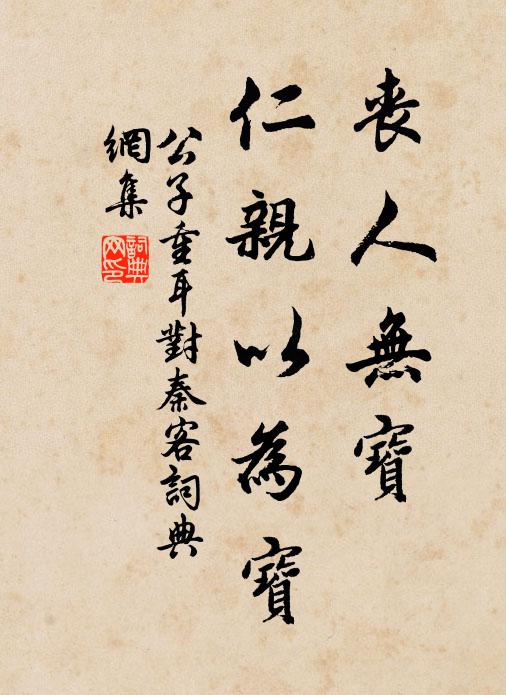 喪人無寶
仁親以為寶
公子重耳對秦客詞典
網集
詞典
网印